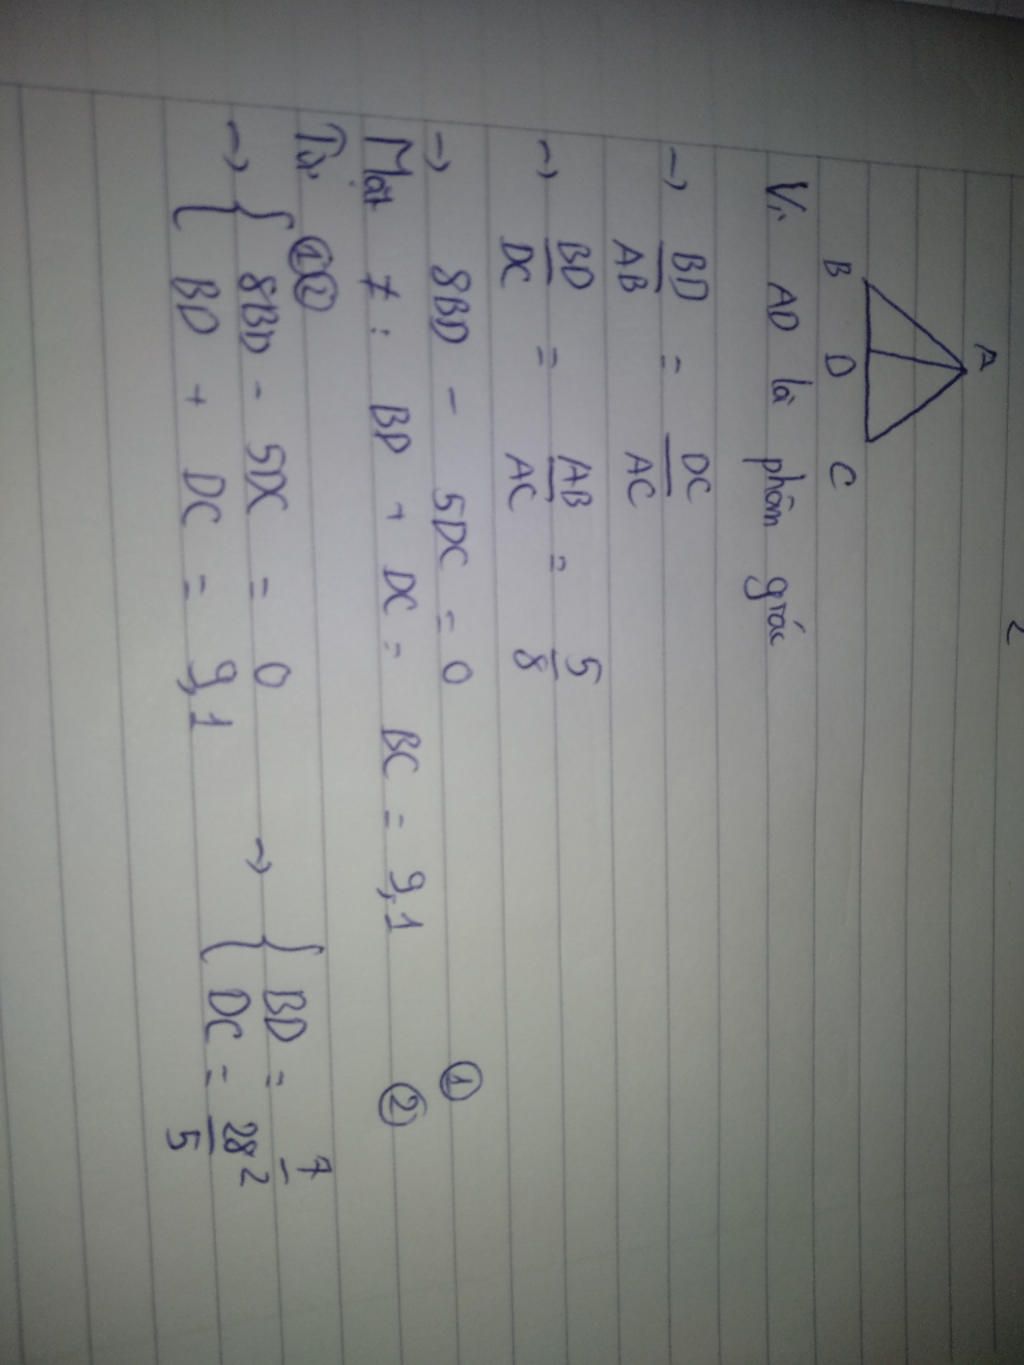 A
B D C
Vì AD là phân giác
→ BD/AB = DC/AC
→ BD/DC = AB/AC = 5/8
→ 8BD - 5DC = 0 ①
Mặt ≠ : BD + DC = BC = 9,1 ②
Từ ①②
→ { 8BD - 5DC = 0 → { BD = 7/2
{ BD + DC = 9,1 { DC = 28/5